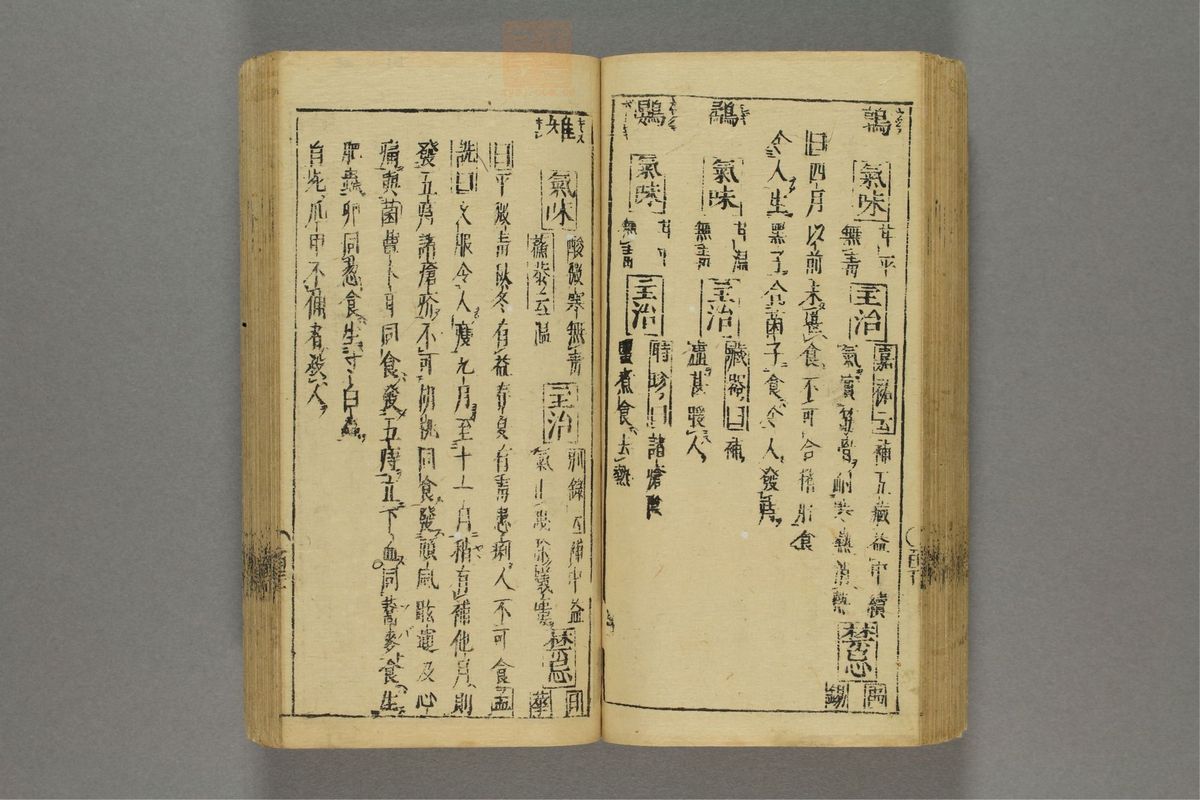 鶉 氣味 甘平無毒 主治 嘉祐云補五臟益中續氣實筋骨耐寒暑消熱 禁忌 禹錫
曰四月以前未堪食不可合猪肝食
令人生黑子合菌子食令人發痔
鷸 氣味 甘温無毒 主治 藏器曰補虚甚暖人
氣味 甘平無毒 主治 時珍曰諸瘡
鹽煮食去熱
雉 氣味 酸微寒無毒 蘇恭云温 主治 別錄云補中益氣止洩 禁忌 日華
曰平微毒秋冬有益春夏有毒患痢人不可食孟
詵曰久服令人瘦九月至十一月稍有補他月則
發五痔諸瘡疥不可胡桃同食發頭風眩運及心
痛與菌蕈木耳同食發五痔立下血同蕎麥食生
肥蟲卵同葱食生寸白蟲
自死爪甲不伸者殺人